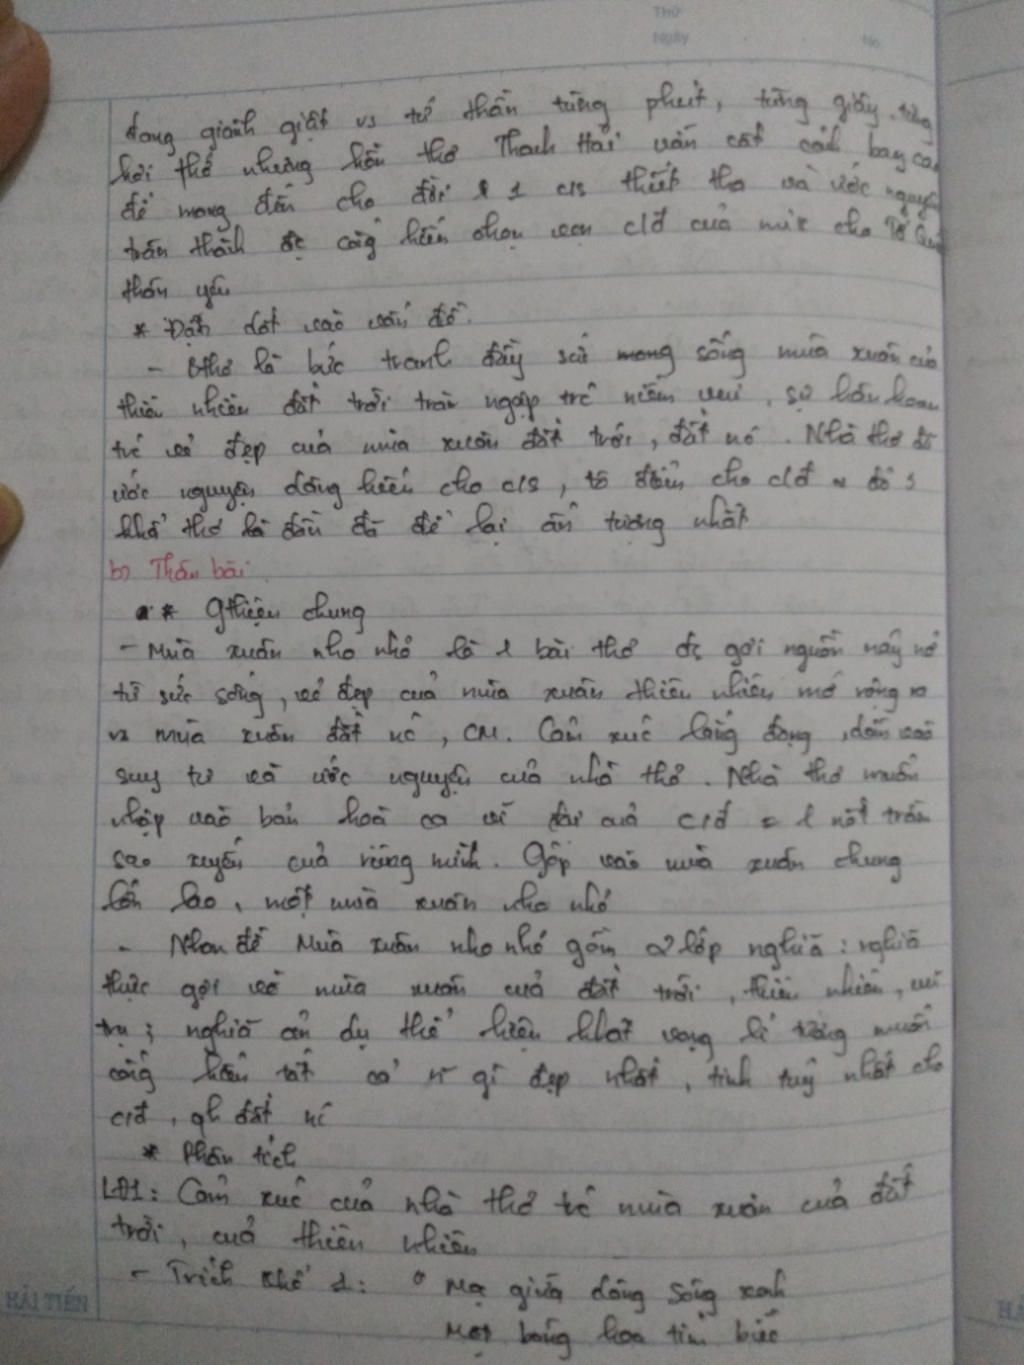 Thứ
Ngày No.
đang giành giật vs tử thần từng phút, từng giây, từng
hơi thở nhưng hồn thơ Thanh Hải vẫn cất cánh bay cao
để mang đến cho đời 1 c/s thiết tha và ước nguyện
trân thành đc cống hiến trọn vẹn c/đ của mìh cho Tổ Quốc
thân yêu
* Dẫn dắt vào vấn đề.
- Bthơ là bức tranh đầy sức mong sống mùa xuân của
thiên nhiên đất trời tràn ngập niềm vui, sự hân hoan
vẻ đẹp của mùa xuân đất trời, đất nc. Nhà thơ đã
ước nguyện dâng hiến cho c/s, tô điểm cho c/đ
khổ thơ là đầu đã để lại ấn tượng nhất
b) Thân bài
* Gthiệu chung
- Mùa xuân nho nhỏ là 1 bài thơ đc gợi nguồn nảy nở
từ sức sống, vẻ đẹp của mùa xuân thiên nhiên mở rộng ra
vs mùa xuân đất nc, CM. Cảm xúc lắng đọng, dần vào
suy tư và ước nguyện của nhà thơ. Nhà thơ muốn
nhập vào bản hoà ca vĩ đại của c/đ = 1 nốt trầm
sao xuyến của riêng mình. Góp vào mùa xuân chung
lớn lao, một mùa xuân nho nhỏ
- Nhan đề Mùa xuân nho nhỏ gồm 2 lớp nghĩa: nghĩa
thực gợi về mùa xuân của đất trời, thiên nhiên, vũ
trụ; nghĩa ẩn dụ thể hiện khát vọng lí tưởng muốn
cống hiến tất cả n~ gì đẹp nhất, tinh tuý nhất cho
c/đ, qh đất nc
* Phân tích
LĐ1: Cảm xúc của nhà thơ về mùa xuân của đất
trời, của thiên nhiên
- Trích khổ 1: " Mọc giữa dòng sông xanh
Một bông hoa tím biếc
HẢI TIẾN